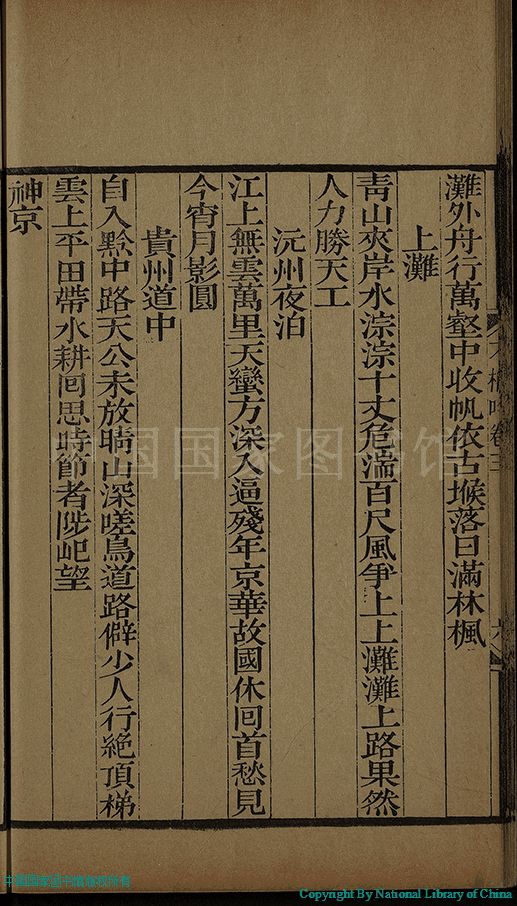 灘外舟行萬壑中收帆依古堠落日滿林楓
上灘
靑山夾岸水淙淙十丈危湍百尺風爭上上灘灘上路果然
人力勝天工
沅州夜泊
江上無雲萬里天蠻方深入逼殘年京華故國休囘首愁見
今宵月影圓
貴州道中
自入黔中路天公未放晴山深嗟鳥道路僻少人行絶頂梯
雲上平田帶水耕囘思時節者陟屺望
神京
卷三
六
中国国家图书馆
Copyright By National Library of China